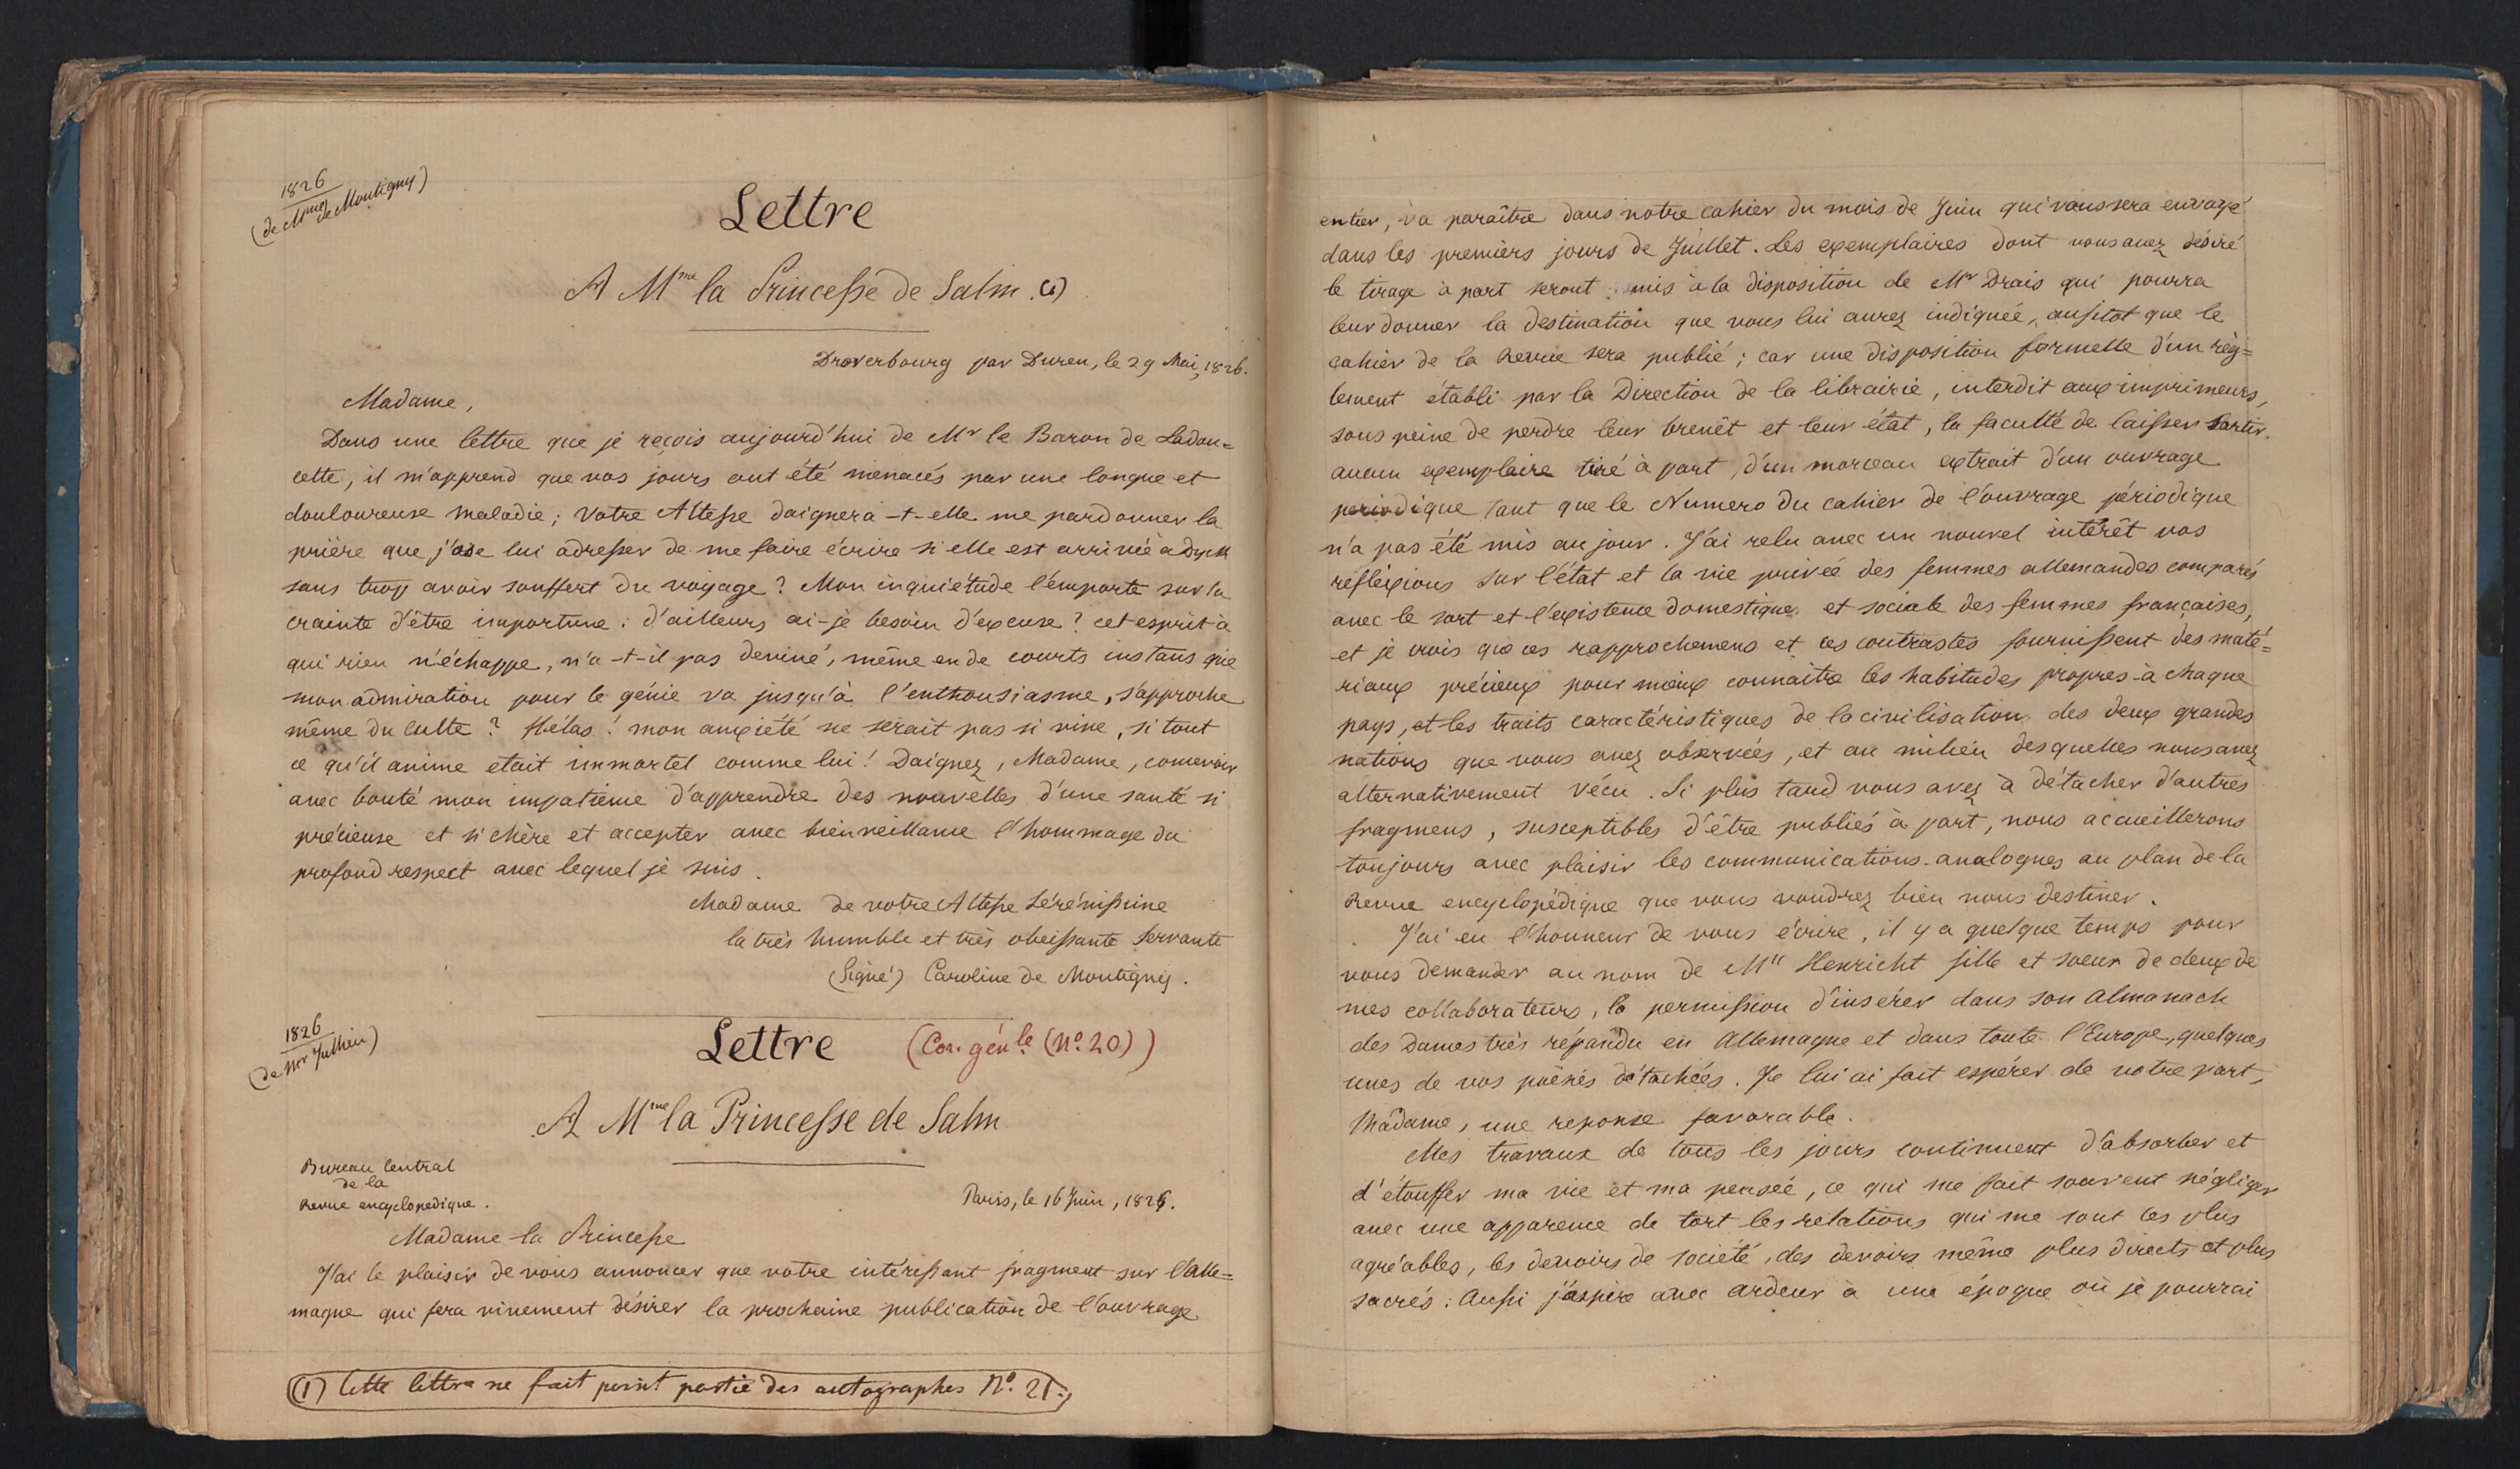 1826
(de Mme de Montigny)
Lettre
A Mme la Princesse de Salm. (1)
Droverbourg par Duren, le 29 Mai, 1826.
Madame,
Dans une lettre que je reçois aujourd'hui de Mr le Baron de Ladou=
cette, il m'apprend que vos jours ont été menacés par une longue et
douloureuse maladie; Votre Altesse daignera-t-elle me pardonner la
prière que j'ose lui adresser de me faire écrire si elle est arrivée a Dyck
sans trop avoir souffert du voyage? Mon inquiétude l'emporte sur la
crainte d'être importune: d'ailleurs ai-je besoin d'excuse? cet esprit à
qui rien n'échappe, n'a-t-il pas deviné, même en de courts instans que
mon admiration pour le génie va jusqu'à l'enthousiasme, s'approche
même du culte? Hélas! mon anxiété ne serait pas si vive, si tout
ce qu'il anime etait immortel comme lui! Daignez, Madame, concevoir
avec bonté mon impatience d'apprendre des nouvelles d'une santé si
précieuse et si chère et accepter avec bienveillance l'hommage du
profond respect avec lequel je suis.
Madame de votre Altesse Sérénissime
la très humble et très obeissante Servante
(Signé) Caroline de Montigny.
1826
(de Mr Jullien)
Lettre (Cor. génle (No. 20))
A Mme la Princesse de Salm
Bureau Central
de la
Revue encyclopedique.
Paris, le 16 Juin, 1826.
Madame la Princesse
J'ai le plaisir de vous annoncer que votre intéressant fragment sur l'Alle=
magne qui fera vivement désirer la prochaine publication de l'ouvrage
(1) Cette lettre ne fait point partie des autographes No. 21.
entier, va paraître dans notre cahier du mois de Juin qui vous sera envoyé
dans les premiers jours de Juillet. Les exemplaires dont vous avez désiré
le tirage à part seront mis à la disposition de Mr Drais qui pourra
leur donner la destination que vous lui aurez indiquée, aussitot que le
cahier de la Revue sera publié; car une disposition formelle d'un règ=
lement établi par la Direction de la librairie, interdit aux imprimeurs,
sous peine de perdre leur brevêt et leur état, la faculté de laisser sortir
aucun exemplaire tiré à part, d'un morceau extrait d'un ouvrage
periodique tant que le Numero du cahier de l'ouvrage périodique
n'a pas été mis au jour. J'ai relu avec un nouvel intérêt vos
réfléxions sur l'état et la vie privée des femmes allemandes comparés
avec le sort et l'existence domestique et sociale des femmes françaises,
et je crois que ces rapprochemens et ces contrastes fournissent des maté=
riaux précieux pour mieux connaitre les habitudes propres à chaque
pays, et les traits caractéristiques de la civilisation des deux grandes
nations que vous avez observées, et au milieu desquelles vous avez
alternativement vécu. Si plus tard vous avez à détacher d'autres
fragmens, susceptibles d'être publiés à part, nous accueillerons
toujours avec plaisir les communications analogues au plan de la
Revue encyclopédique que vous voudrez bien nous destiner.
J'ai eu l'honneur de vous écrire, il y a quelque temps pour
vous demander au nom de Mlle Henricht fille et soeur de deux de
mes collaborateurs, la permission d'insérer dans son Almanach
des Dames très répandu en Allemagne et dans toute l'Europe, quelques
unes de vos poësies détachées. Je lui ai fait espérer de votre part,
Madame, une reponse favorable.
Mes travaux de tous les jours continuent d'absorber et
d'étouffer ma vie et ma pensée, ce qui me fait souvent négliger
avec une apparence de tort les relations qui me sont les plus
agréables, les devoirs de société, des devoirs même plus directs et plus
sacrés: Aussi j'aspire avec ardeur à une époque où je pourrai